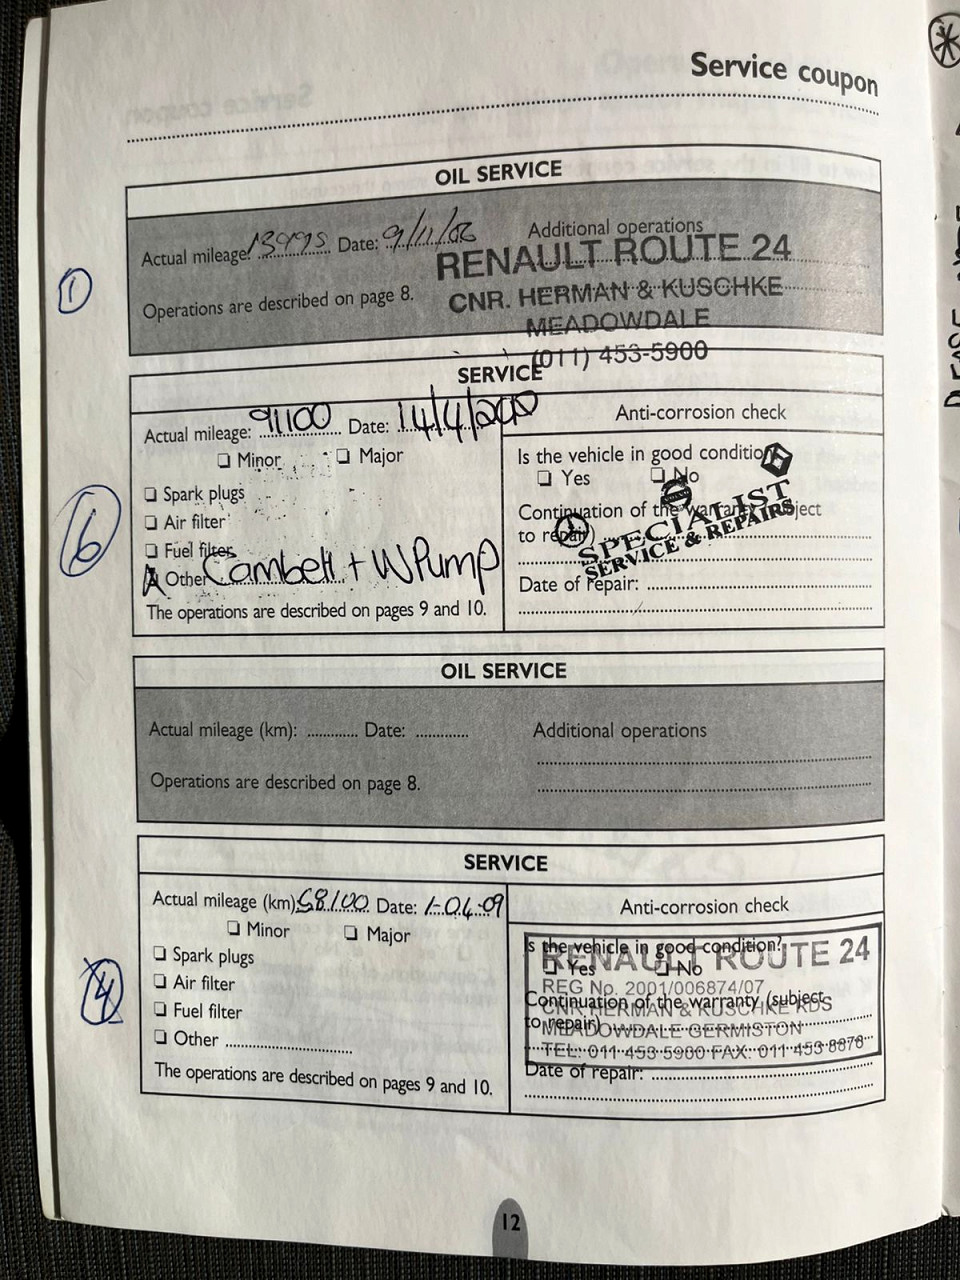 Service coupon
OIL SERVICE
Actual mileage: 13995 Date: 9/11/06
Additional operations
RENAULT ROUTE 24
CNR. HERMAN & KUSCHKE
MEADOWDALE
(011) 453-5900
Operations are described on page 8.
1
SERVICE
Actual mileage: 91100 Date: 14/4/2010
Minor Major
Spark plugs
Air filter
Fuel filter
Other Cambelt + W Pump
The operations are described on pages 9 and 10.
6
Anti-corrosion check
Is the vehicle in good condition
Yes No
Continuation of the warranty subject
to repair)
SPECIALIST
SERVICE & REPAIRS
Date of repair:
OIL SERVICE
Actual mileage (km): Date:
Additional operations
Operations are described on page 8.
SERVICE
Actual mileage (km) 68100 Date: 1-04-09
Minor Major
Spark plugs
Air filter
Fuel filter
Other
The operations are described on pages 9 and 10.
4
Anti-corrosion check
Is the vehicle in good condition?
Yes No
Continuation of the warranty (subject
to repair)
Date of repair:
RENAULT ROUTE 24
REG No. 2001/006874/07
CNR HERMAN & KUSCHKE RDS
MEADOWDALE GERMISTON
TEL: 011 453 5900 FAX: 011 453 8878
12